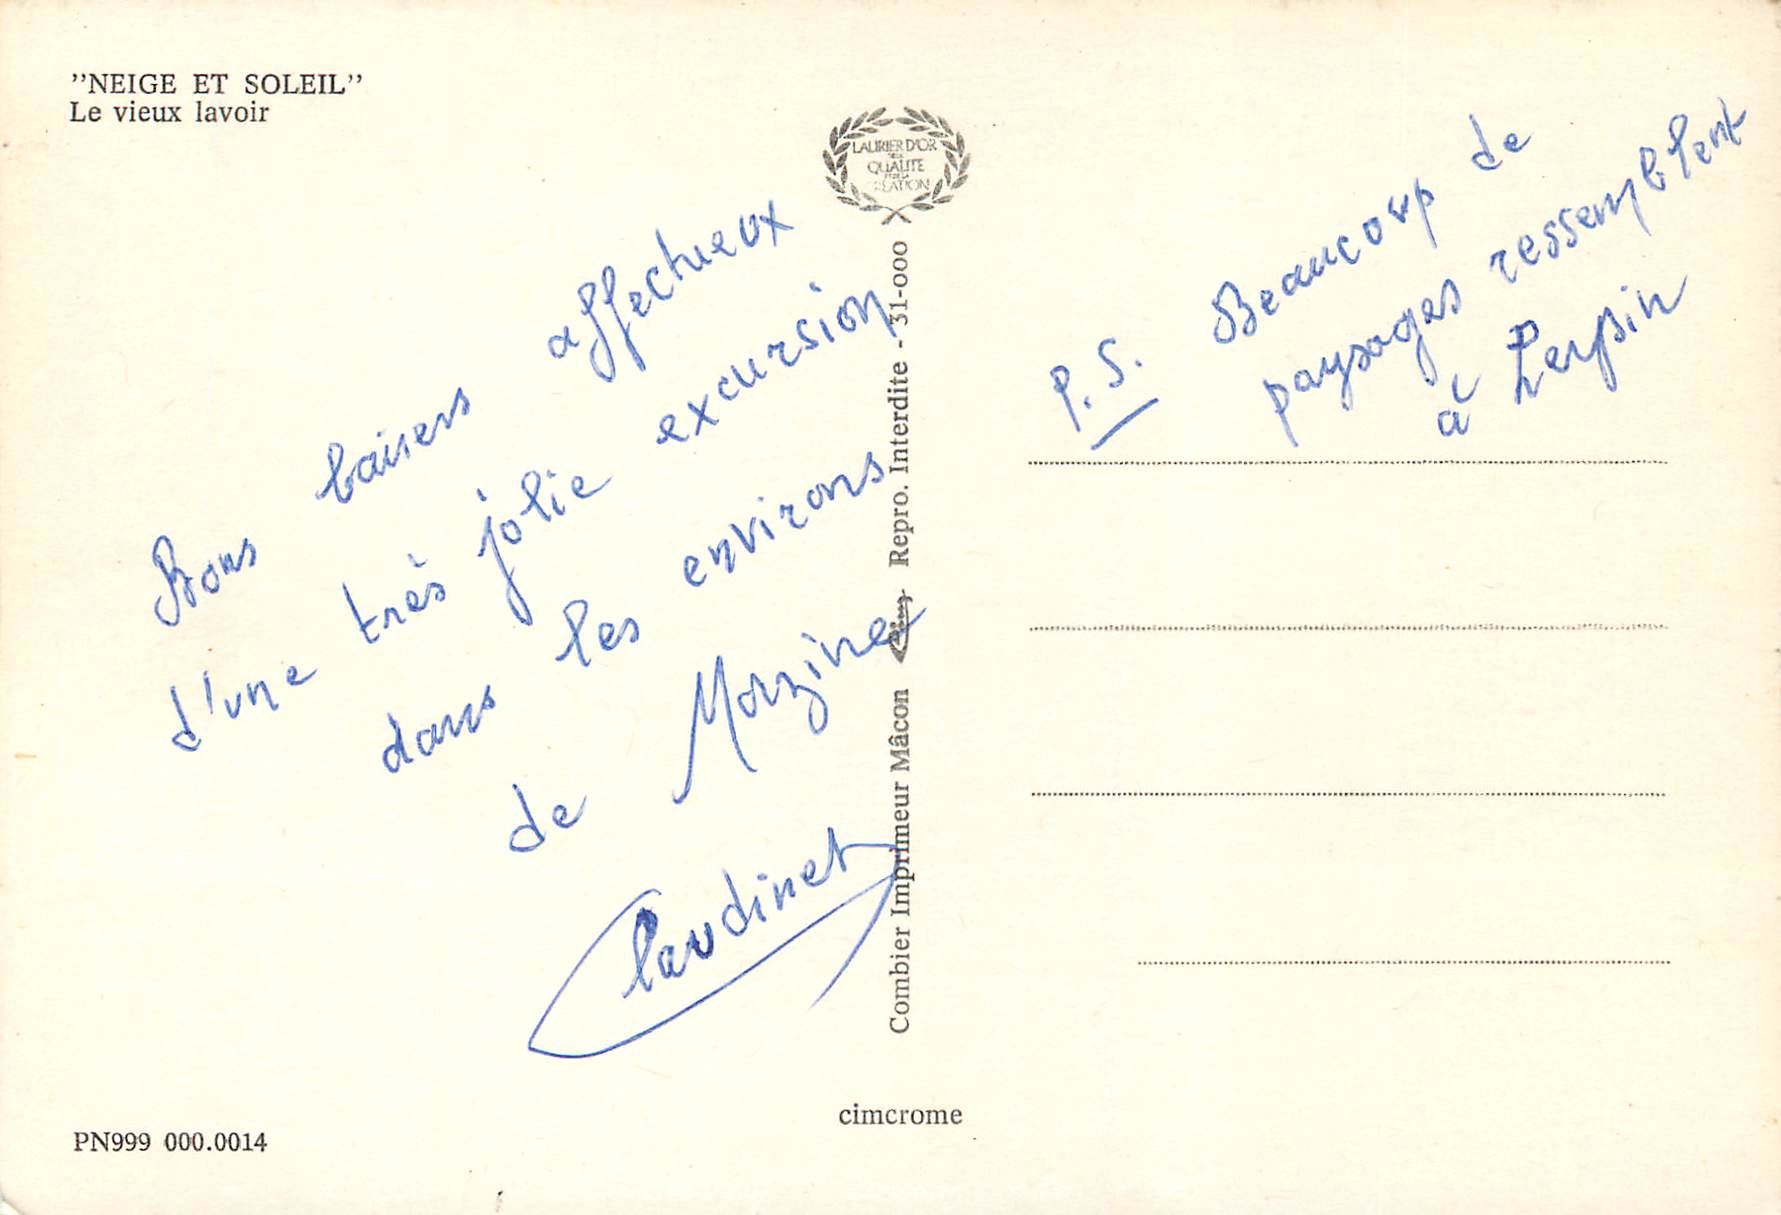 "NEIGE ET SOLEIL"
Le vieux lavoir
Bons baisers affectueux
d'une très jolie excursion
dans les environs
de Morzine
Claudinet
PN999 000.0014
LAURIER D'OR
DE LA
QUALITE
ET DE LA
CREATION
Combier Imprimeur Mâcon Cim Repro. Interdite - 31-000
cimcrome
P.S. Beaucoup de
paysages ressemblent
à